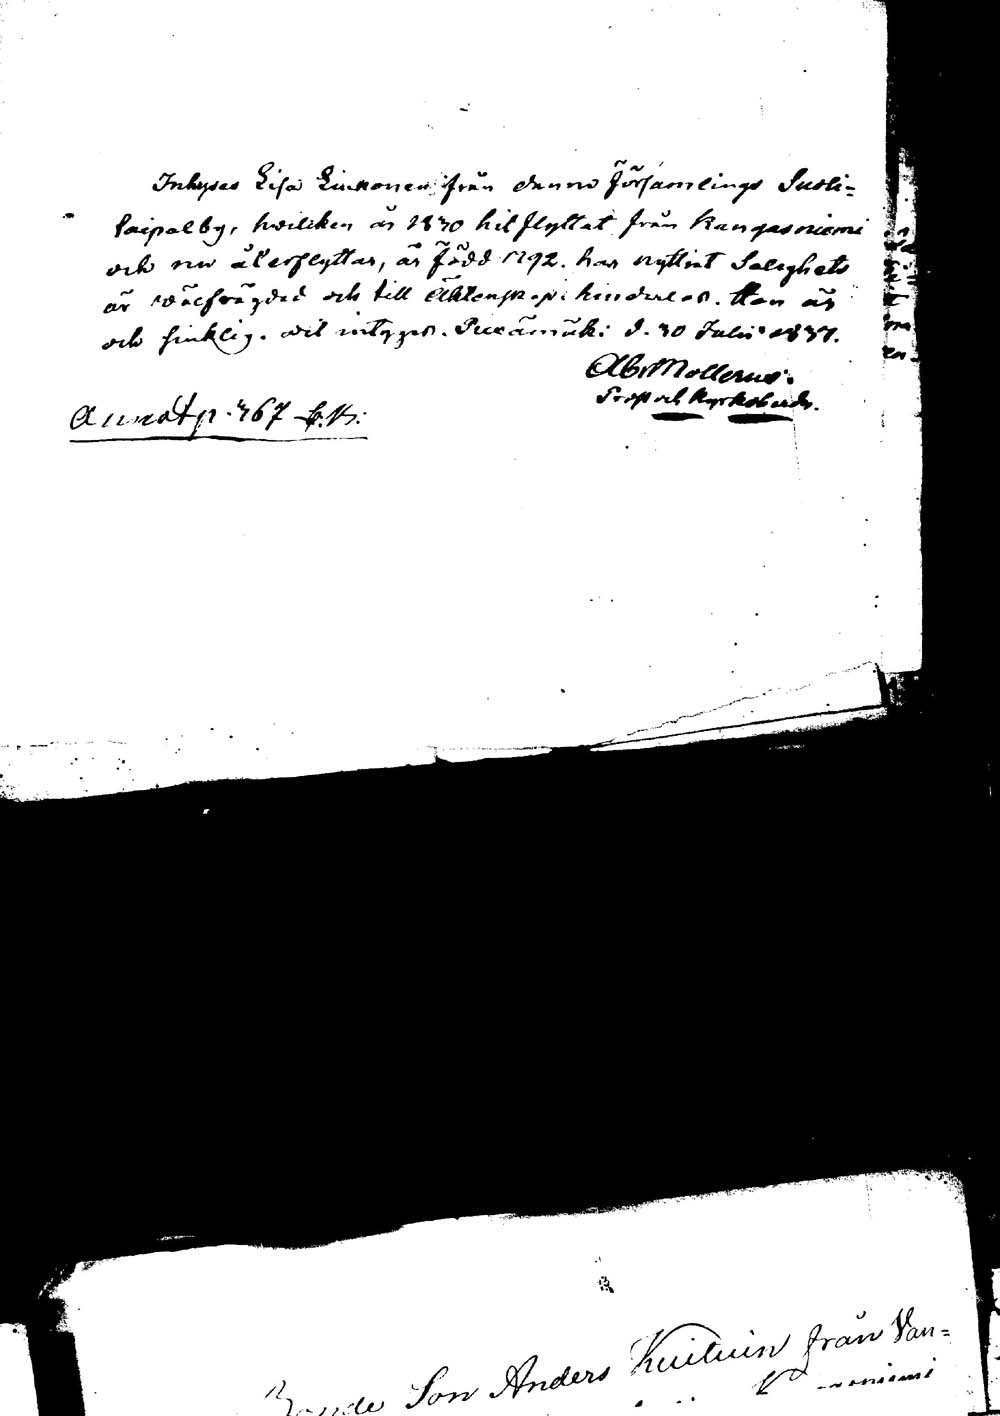 Inhyses Lisa Liukonen från denna Församlings Suoli=
laipal by, hwilken år 1830 hit flyttat från Kangasniemi
och nu återflyttar, är född 1792. har nyttjat Salighets
är wälfrägdad och till Äktenskap hinderlös. Hon är
och sinklig. wit intygas. Piexämäki d. 30 Julii 1837.
Abr Mollerus.
Prost och Kyrkoherde.
Annot p. 367 K.B.
Bonde Son Anders Kuituin från Kan=